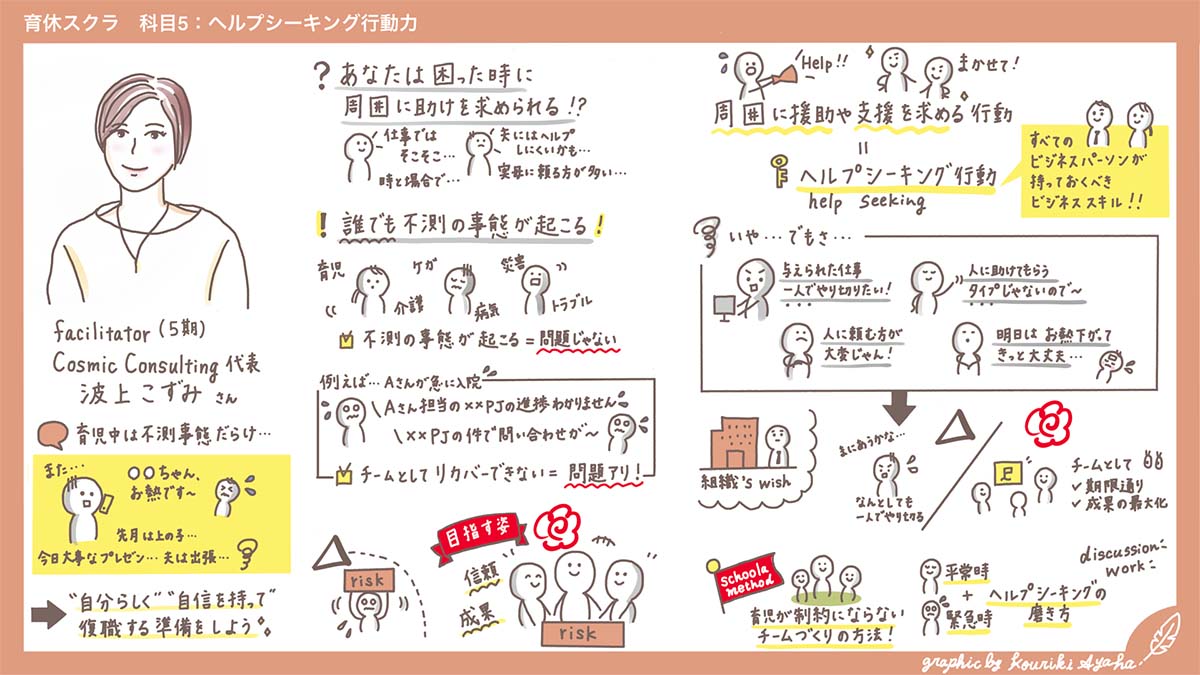 育休スクラ 科目5：ヘルプシーキング行動力
facilitator (5期)
Cosmic Consulting 代表
波上こずみ さん
育児中は不測事態だらけ…
また…
〇〇ちゃん、
お熱です〜
先月は上の子…
今日大事なプレゼン… 夫は出張…
"自分らしく" "自信を持って"
復職する準備をしよう
? あなたは困った時に
周囲に助けを求められる!?
仕事では
そこそこ…
時と場合で…
夫にはヘルプ
しにくいかも…
実母に頼る方が多い…
! 誰でも不測の事態が起こる!
育児
介護
ケガ
病気
災害
トラブル
不測の事態が起こる = 問題じゃない
例えば… Aさんが急に入院
Aさん担当の××PJの進捗わかりません
××PJの件で問い合わせが〜
チームとしてリカバーできない = 問題アリ!
risk
目指す姿
信頼
成果
risk
Help!!
まかせて!
周囲に援助や支援を求める行動
=
ヘルプシーキング行動
help seeking
すべての
ビジネスパーソンが
持っておくべき
ビジネススキル!!
いや…でもさ…
与えられた仕事
一人でやり切りたい!
人に助けてもらう
タイプじゃないので〜
人に頼む方が
大変じゃん!
明日は お熱下がって
きっと大丈夫…
組織's wish
まにあうかな…
なんとしても
一人でやり切る
チームとして
✓ 期限通り
✓ 成果の最大化
schoola
method
育児が制約にならない
チームづくりの方法!
平常時
+
緊急時
ヘルプシーキングの
磨き方
discussion
work
graphic by Kouriki Ayaha.